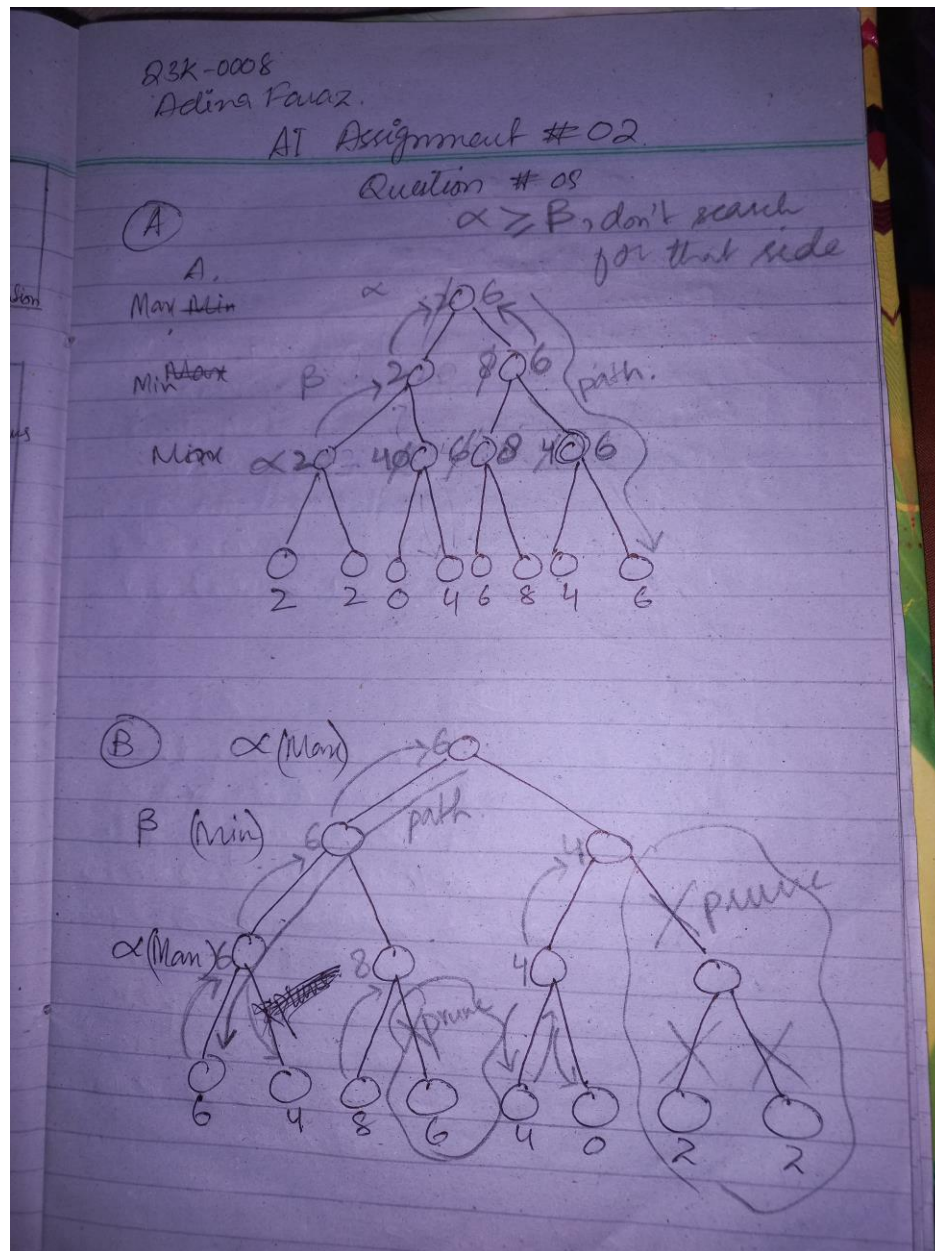 23K-0008
Adina Faraz.
AI Assignment # 02
Question # 05
α ≥ β, don't search
for that side
A
A.
Max Min
α 2 6
Min Max β 2 8 6 path.
Max α 2 4 0 6 8 4 6
2 2 0 4 6 8 4 6
B α (Max) 6
β (Min) 6 path 4
prune
α (Max) 6 8 4
prune
6 4 8 6 4 0 2 2
sion
us